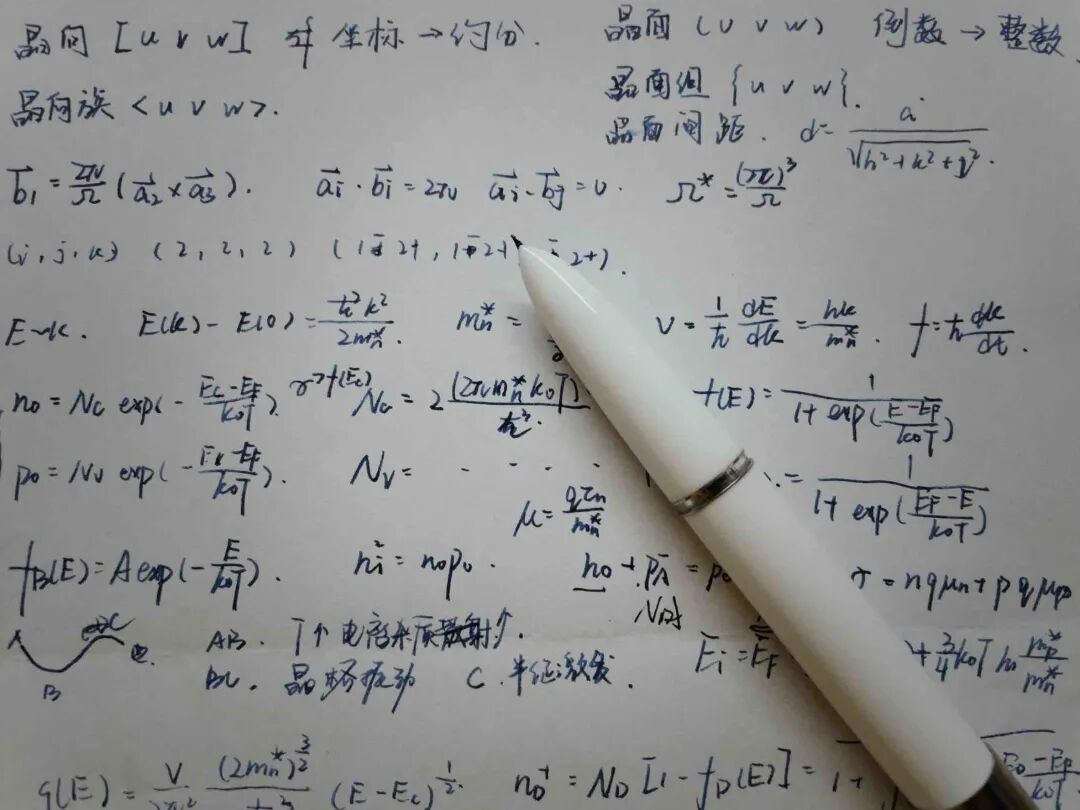 晶向 [u v w] 坐标→约分. 晶面 (u v w) 倒数→整数
晶向族 <u v w>. 晶面组 {u v w}.
晶面间距. d = a / √(h²+k²+l²).
b₁ = 2π/Ω (a₂ × a₃). aᵢ·bᵢ = 2π aᵢ·bⱼ = 0. Ω* = (2π)³/Ω
(i, j, k) (2, 2, 2)
E~k. E(k) - E(0) = ħ²k²/2mn*. mn* = v = 1/ħ dE/dk = ħk/mn*. f = ħ dk/dt.
n₀ = Nc exp(- (Ec-EF)/k₀T). Nc = 2 (2πmn*k₀T) / f(E) = 1 / (1 + exp((E-EF)/k₀T))
p₀ = Nv exp(- (Ev-EF)/k₀T). Nv = - - - - = 1 / (1 + exp((EF-E)/k₀T))
μ = qτn/mn*
fB(E) = A exp(- E/k₀T). ni² = n₀p₀. n₀ + pA⁻ = p₀ = nqμn + pqμp
AB. T↑ 电离杂质散射↓. Ei = EF + 3/4 k₀T ln mp*/mn*
B BC. 晶格振动 C. 本征激发.
g(E) = V (2mn*)^(3/2) (E-Ec)^(1/2). nD⁺ = ND [1 - fD(E)] =